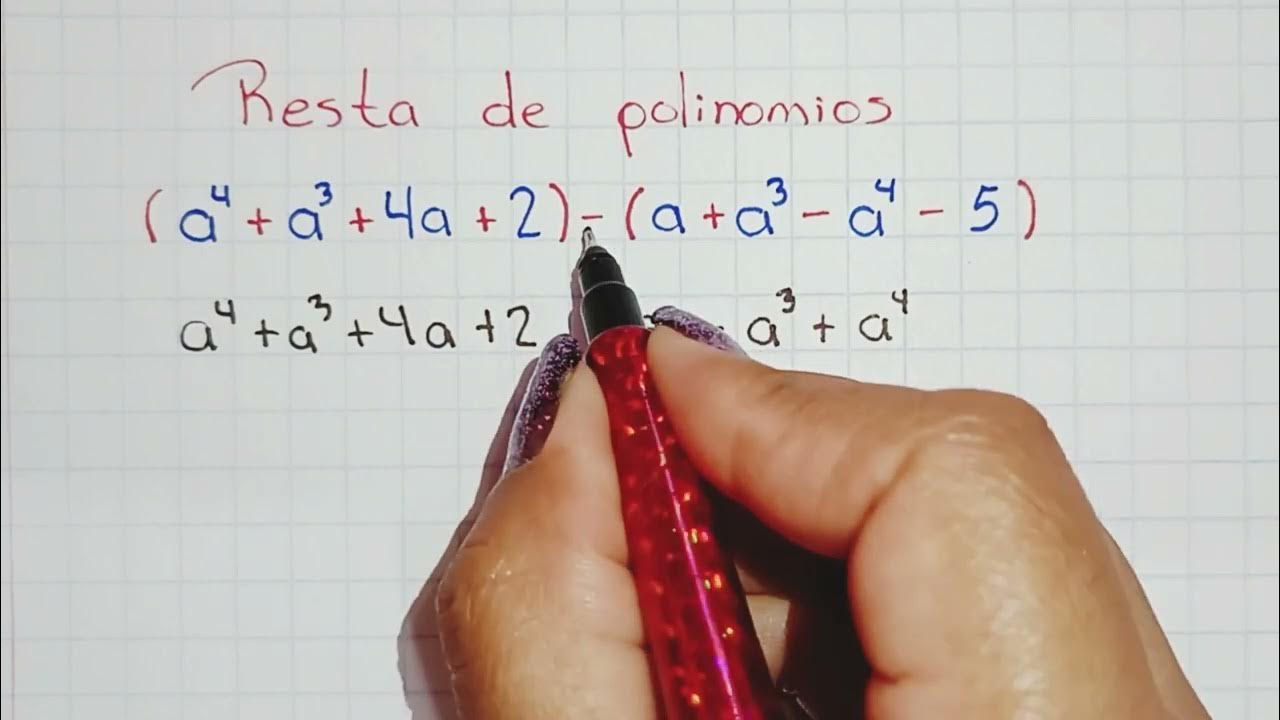 Resta de polinomios
(a⁴ + a³ + 4a + 2) - (a + a³ - a⁴ - 5)
a⁴ + a³ + 4a + 2 a³ + a⁴